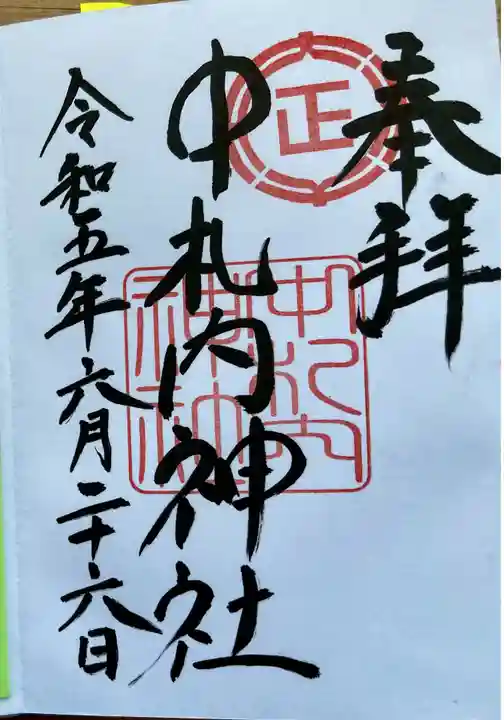 奉拝
正
中札内神社
中札内神社
令和五年六月二十六日